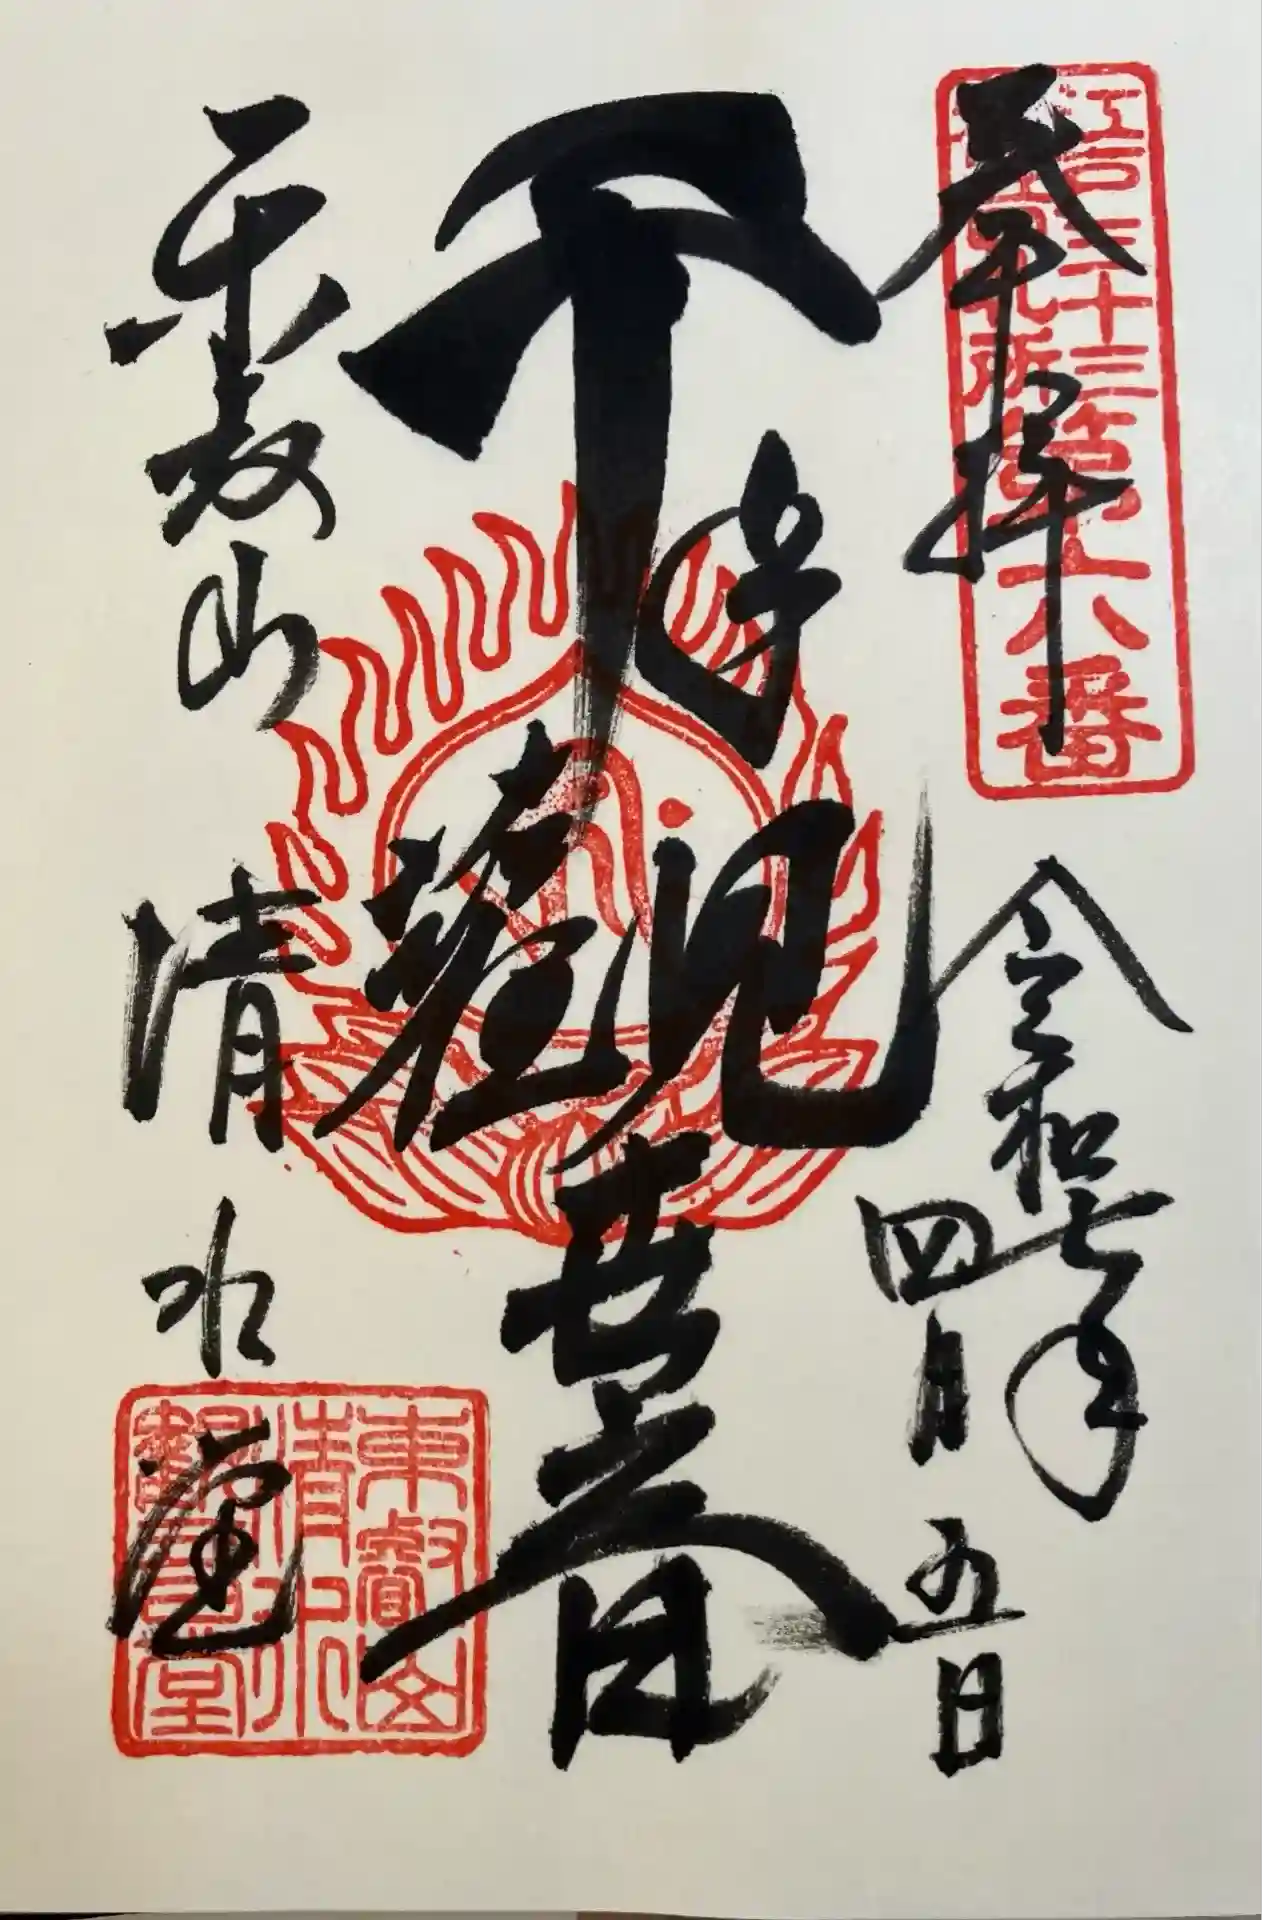 奉拝
江戸三十三
札所第六番
令和七年
四月五日
千手観世音
東叡山
清水堂
東叡山
清水
観音堂